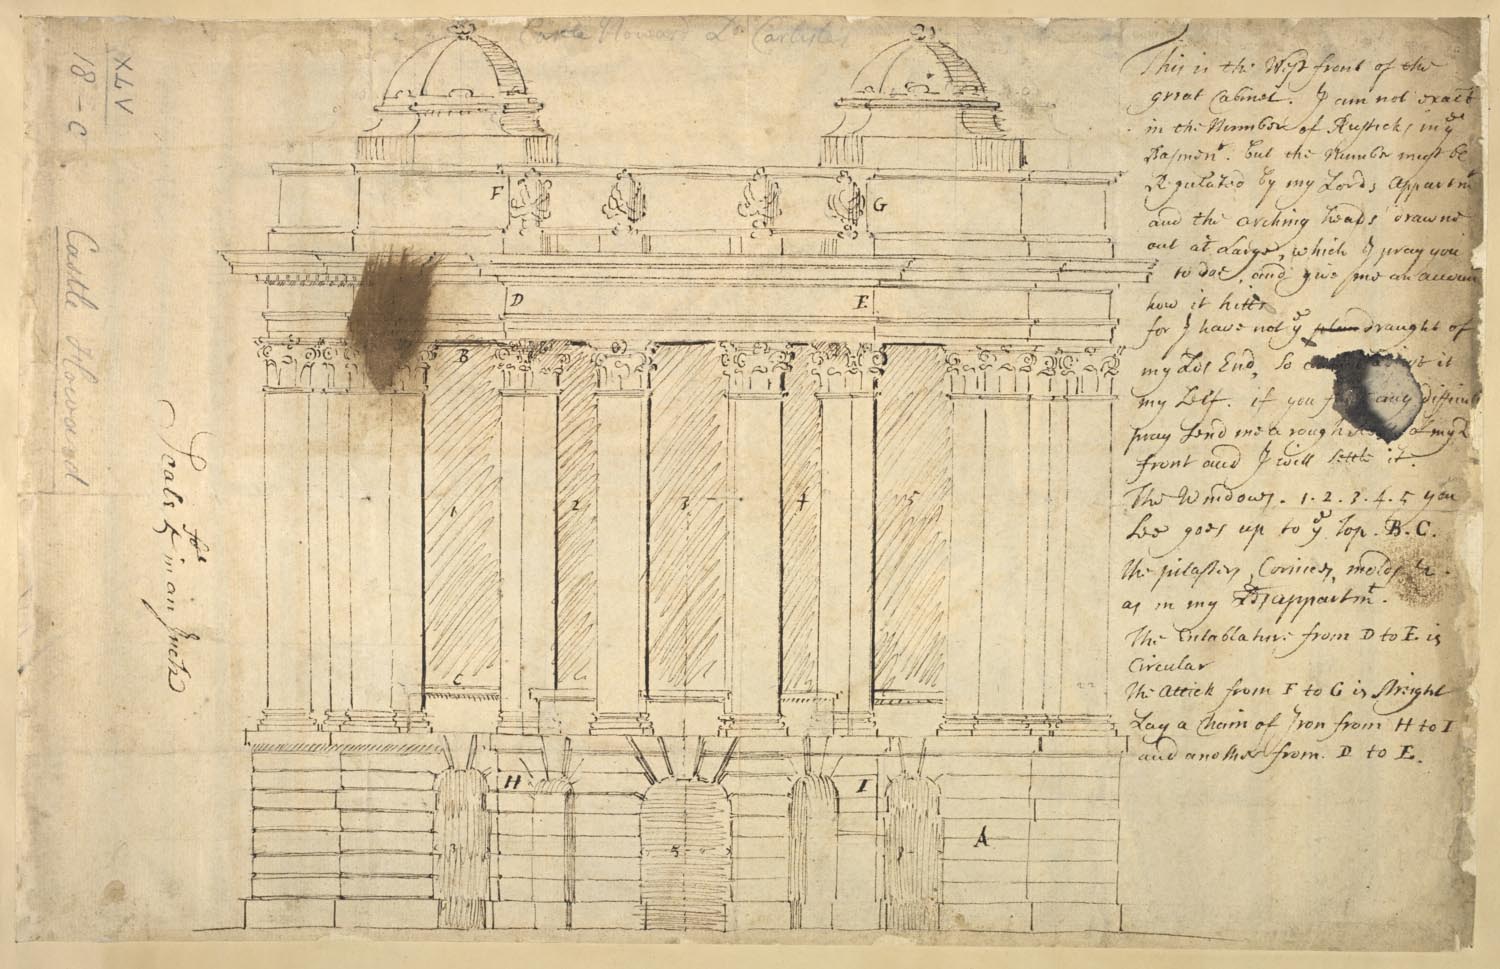 Castle Howard Ld Carlisle
XLV
18-C
Castle Howard
Scale for 5 f in an Inch
This is the West front of the
great Cabinet. I am not exact
in the Number of Rusticks in ye
Basment. but the Number must be
Regulated by my Lords Appartmt
and the arching heads drawne
out at Large, which I pray you
to doe, and give me an accoun
how it hitts
for I have not ye draught of
my Lds End, So it
my Self. if you any difficult
pray send me a rough of my Ld
front and I will settle it.
The Windows. 1. 2. 3. 4. 5 you
see goes up to ye top. B. C.
The pilasters, Cornices, molds &c.
as in my Lds appartmt.
The Entablature from D to E is
Circular
The Attick from F to G is streight
Lay a chain of Iron from H to I
and another from D to E.
F G
D E
B
1 2 3 4 5
C
H I
3 5
A